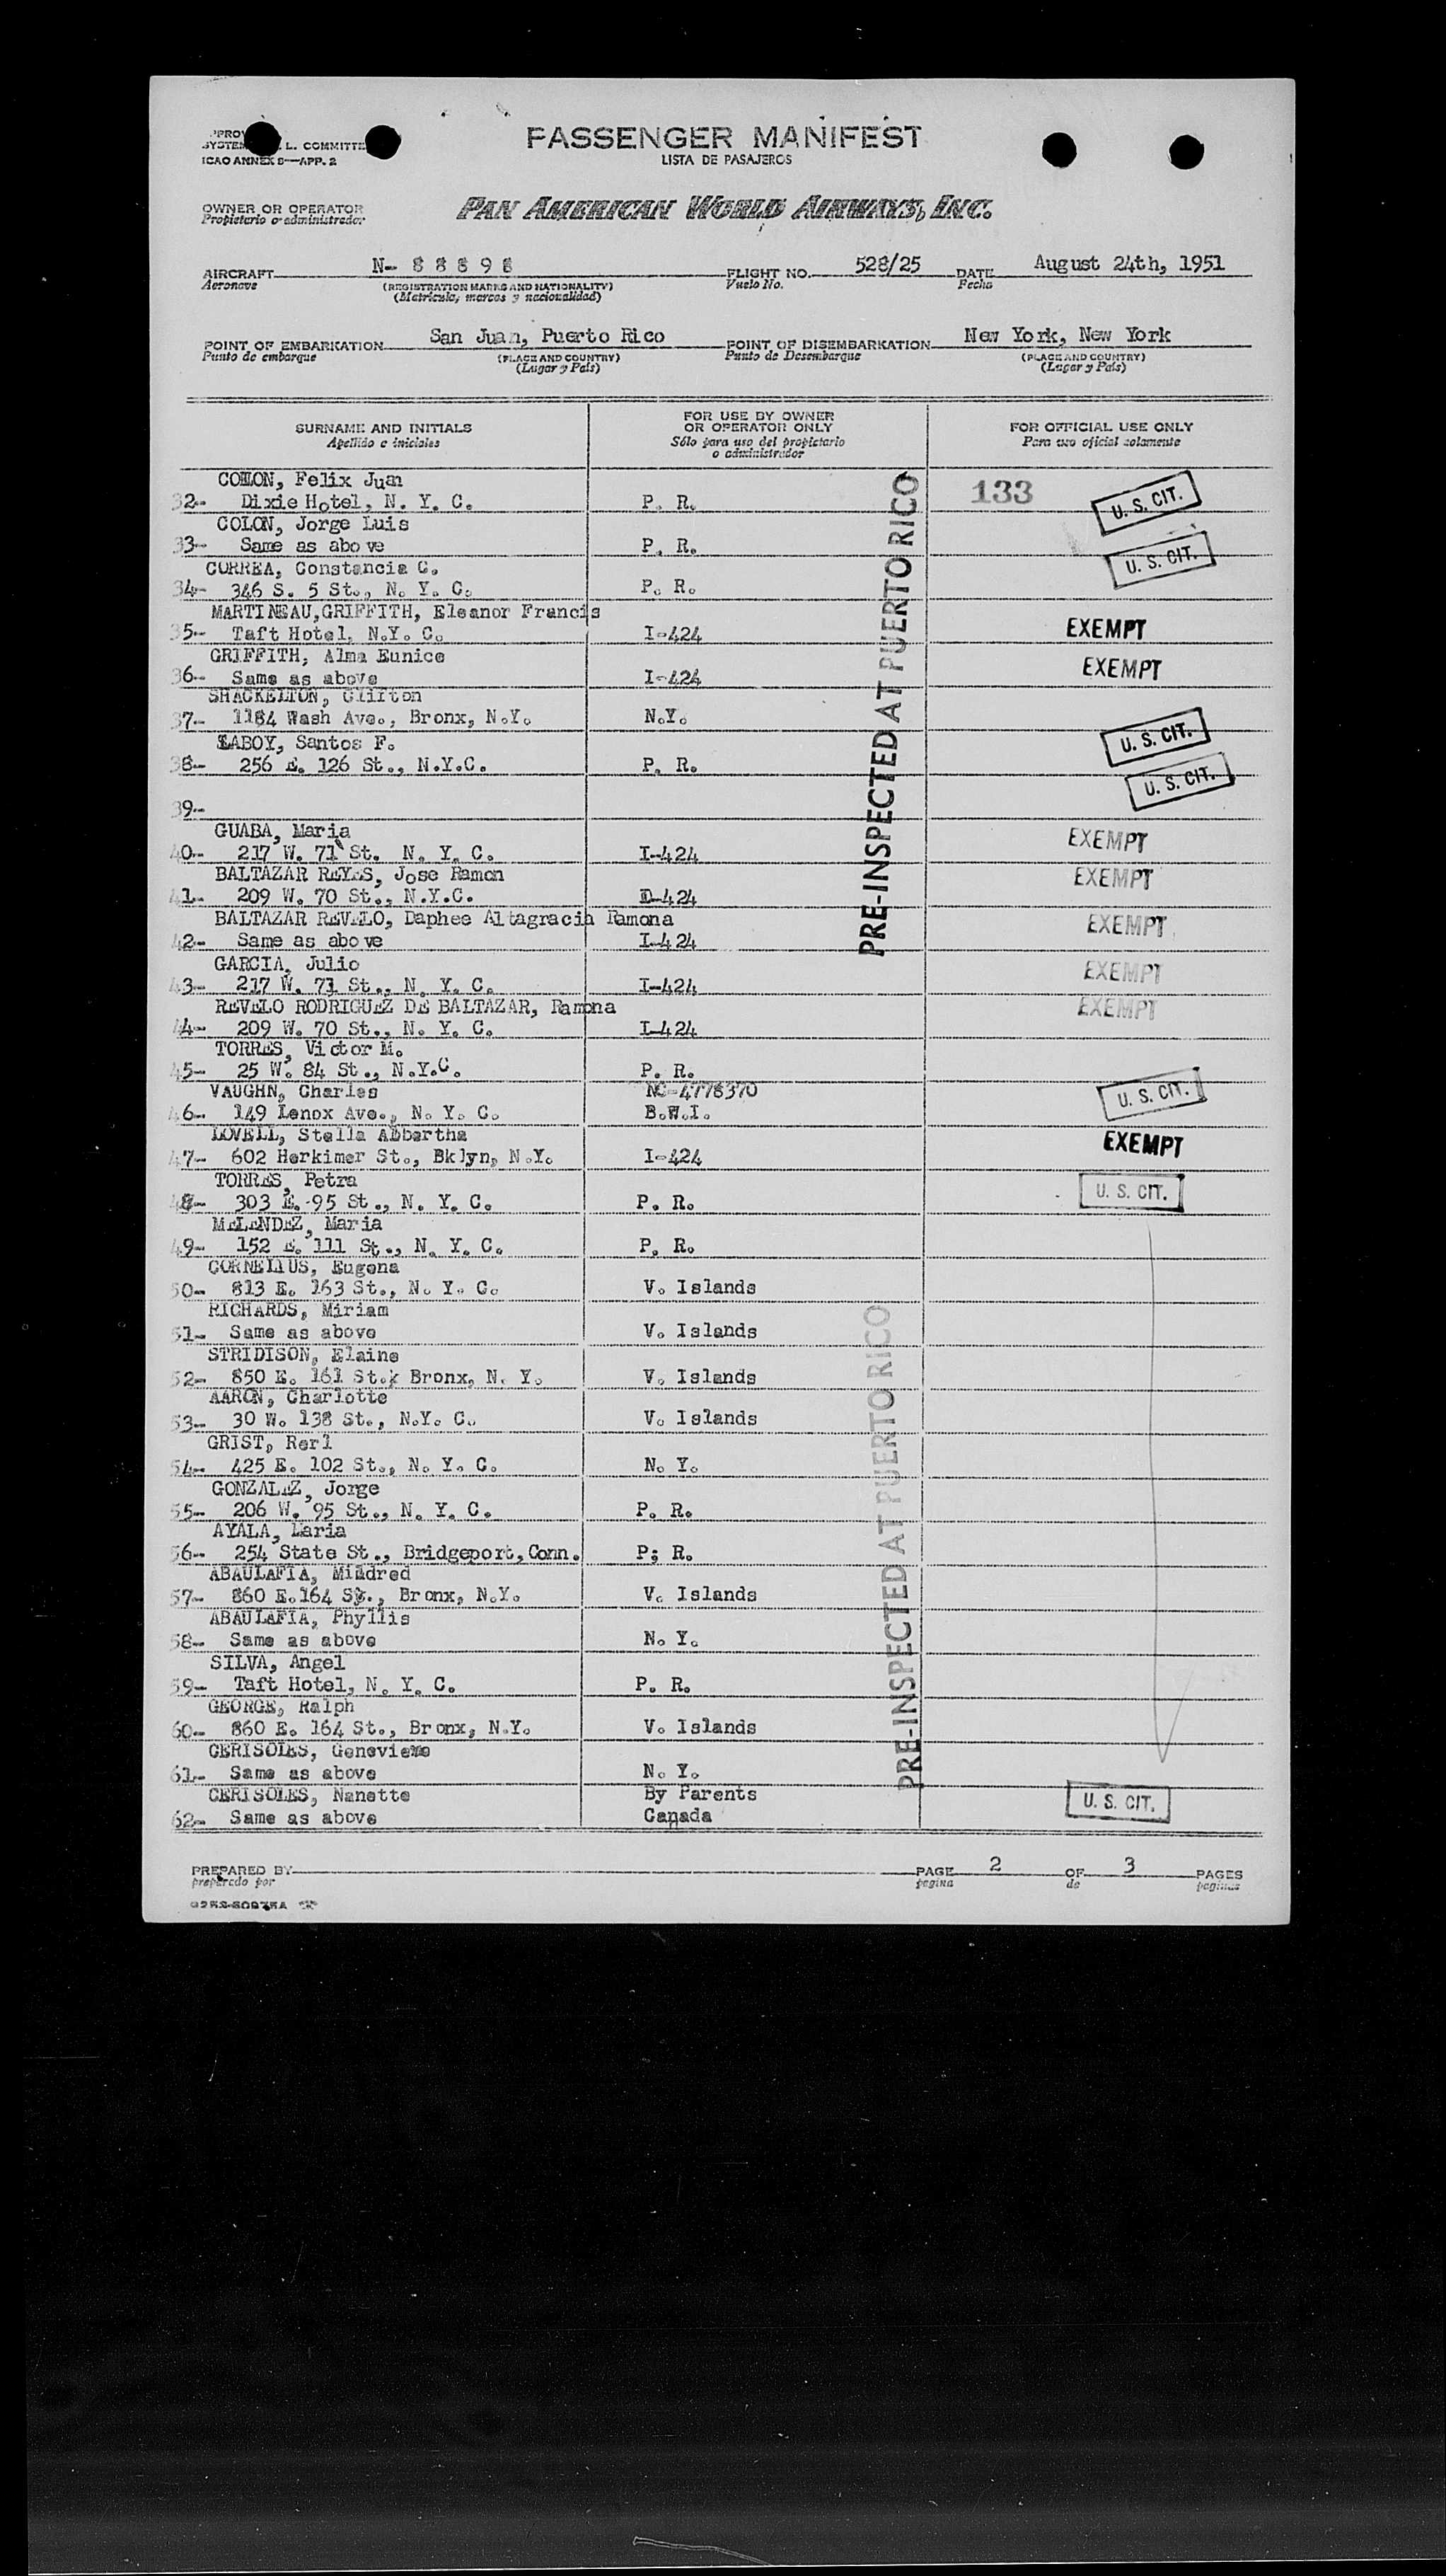 PASSENGER MANIFEST
LISTA DE PASAJEROS
L. COMMITTE
ICAO ANNEX 8—APP. 2
OWNER OR OPERATOR
Propietario o administrador
PAN AMERICAN WORLD AIRWAYS, INC.
AIRCRAFT N- 8 8 8 9 8 FLIGHT NO. 528/25 DATE August 24th, 1951
Aeronave (REGISTRATION MARKS AND NATIONALITY) Vuelo No. Fecha
(Matricula, marcas y nacionalidad)
POINT OF EMBARKATION San Juan, Puerto Rico POINT OF DISEMBARKATION New York, New York
Punto de embarque (PLACE AND COUNTRY) Punto de Desembarque (PLACE AND COUNTRY)
(Lugar y País) (Lugar y País)
SURNAME AND INITIALS FOR USE BY OWNER OR OPERATOR ONLY FOR OFFICIAL USE ONLY
Apellido e iniciales Sólo para uso del propietario o administrador Para uso oficial solamente
COLON, Felix Juan
32- Dixie Hotel, N. Y. C. P. R. 133 U. S. CIT.
COLON, Jorge Luis
33- Same as above P. R. U. S. CIT.
CORREA, Constancia C.
34- 346 S. 5 St., N. Y. C. P. R.
MARTINEAU,GRIFFITH, Eleanor Francis
35- Taft Hotel, N.Y. C. I-424 EXEMPT
GRIFFITH, Alma Eunice
36- Same as above I-424 EXEMPT
SHACKELTON, Clifton
37- 1184 Wash Ave., Bronx, N.Y. N.Y. U. S. CIT.
LABOY, Santos F.
38- 256 E. 126 St., N.Y.C. P. R. U. S. CIT.
39-
GUABA, Maria
40- 217 W. 71 St. N. Y. C. I-424 EXEMPT
BALTAZAR REYES, Jose Ramon
41- 209 W. 70 St., N.Y.C. I-424 EXEMPT
BALTAZAR REVELO, Daphee Altagracia Ramona
42- Same as above I-424 EXEMPT
GARCIA, Julio
43- 217 W. 71 St., N. Y. C. I-424 EXEMPT
REVELO RODRIGUEZ DE BALTAZAR, Ramona
44- 209 W. 70 St., N. Y. C. I-424 EXEMPT
TORRES, Victor M.
45- 25 W. 84 St., N.Y.C. P. R.
VAUGHN, Charles NC-4778370
46- 149 Lenox Ave., N. Y. C. B.W.I. U. S. CIT.
LOVELL, Stella Albertha
47- 602 Herkimer St., Bklyn, N.Y. I-424 EXEMPT
TORRES, Petra
48- 303 E. 95 St., N. Y. C. P. R. U. S. CIT.
MELENDEZ, Maria
49- 152 E. 111 St., N. Y. C. P. R.
CORNELIUS, Eugena
50- 813 E. 163 St., N. Y. C. V. Islands
RICHARDS, Miriam
51- Same as above V. Islands
STRIDISON, Elaine
52- 850 E. 161 St., Bronx, N. Y. V. Islands
AARON, Charlotte
53- 30 W. 138 St., N.Y. C. V. Islands
GRIST, Rerl
54- 425 E. 102 St., N. Y. C. N. Y.
GONZALEZ, Jorge
55- 206 W. 95 St., N. Y. C. P. R.
AYALA, Maria
56- 254 State St., Bridgeport, Conn. P; R.
ABAULAFIA, Mildred
57- 860 E.164 St., Bronx, N.Y. V. Islands
ABAULAFIA, Phyllis
58- Same as above N. Y.
SILVA, Angel
59- Taft Hotel, N. Y. C. P. R.
GEORGE, Ralph
60- 860 E. 164 St., Bronx, N.Y. V. Islands
CERISOLES, Genevieve
61- Same as above N. Y.
CERISOLES, Nanette By Parents
62- Same as above Canada U. S. CIT.
PRE-INSPECTED AT PUERTO RICO
PRE-INSPECTED AT PUERTO RICO
PREPARED BY PAGE 2 OF 3 PAGES
preparado por pagina de paginas